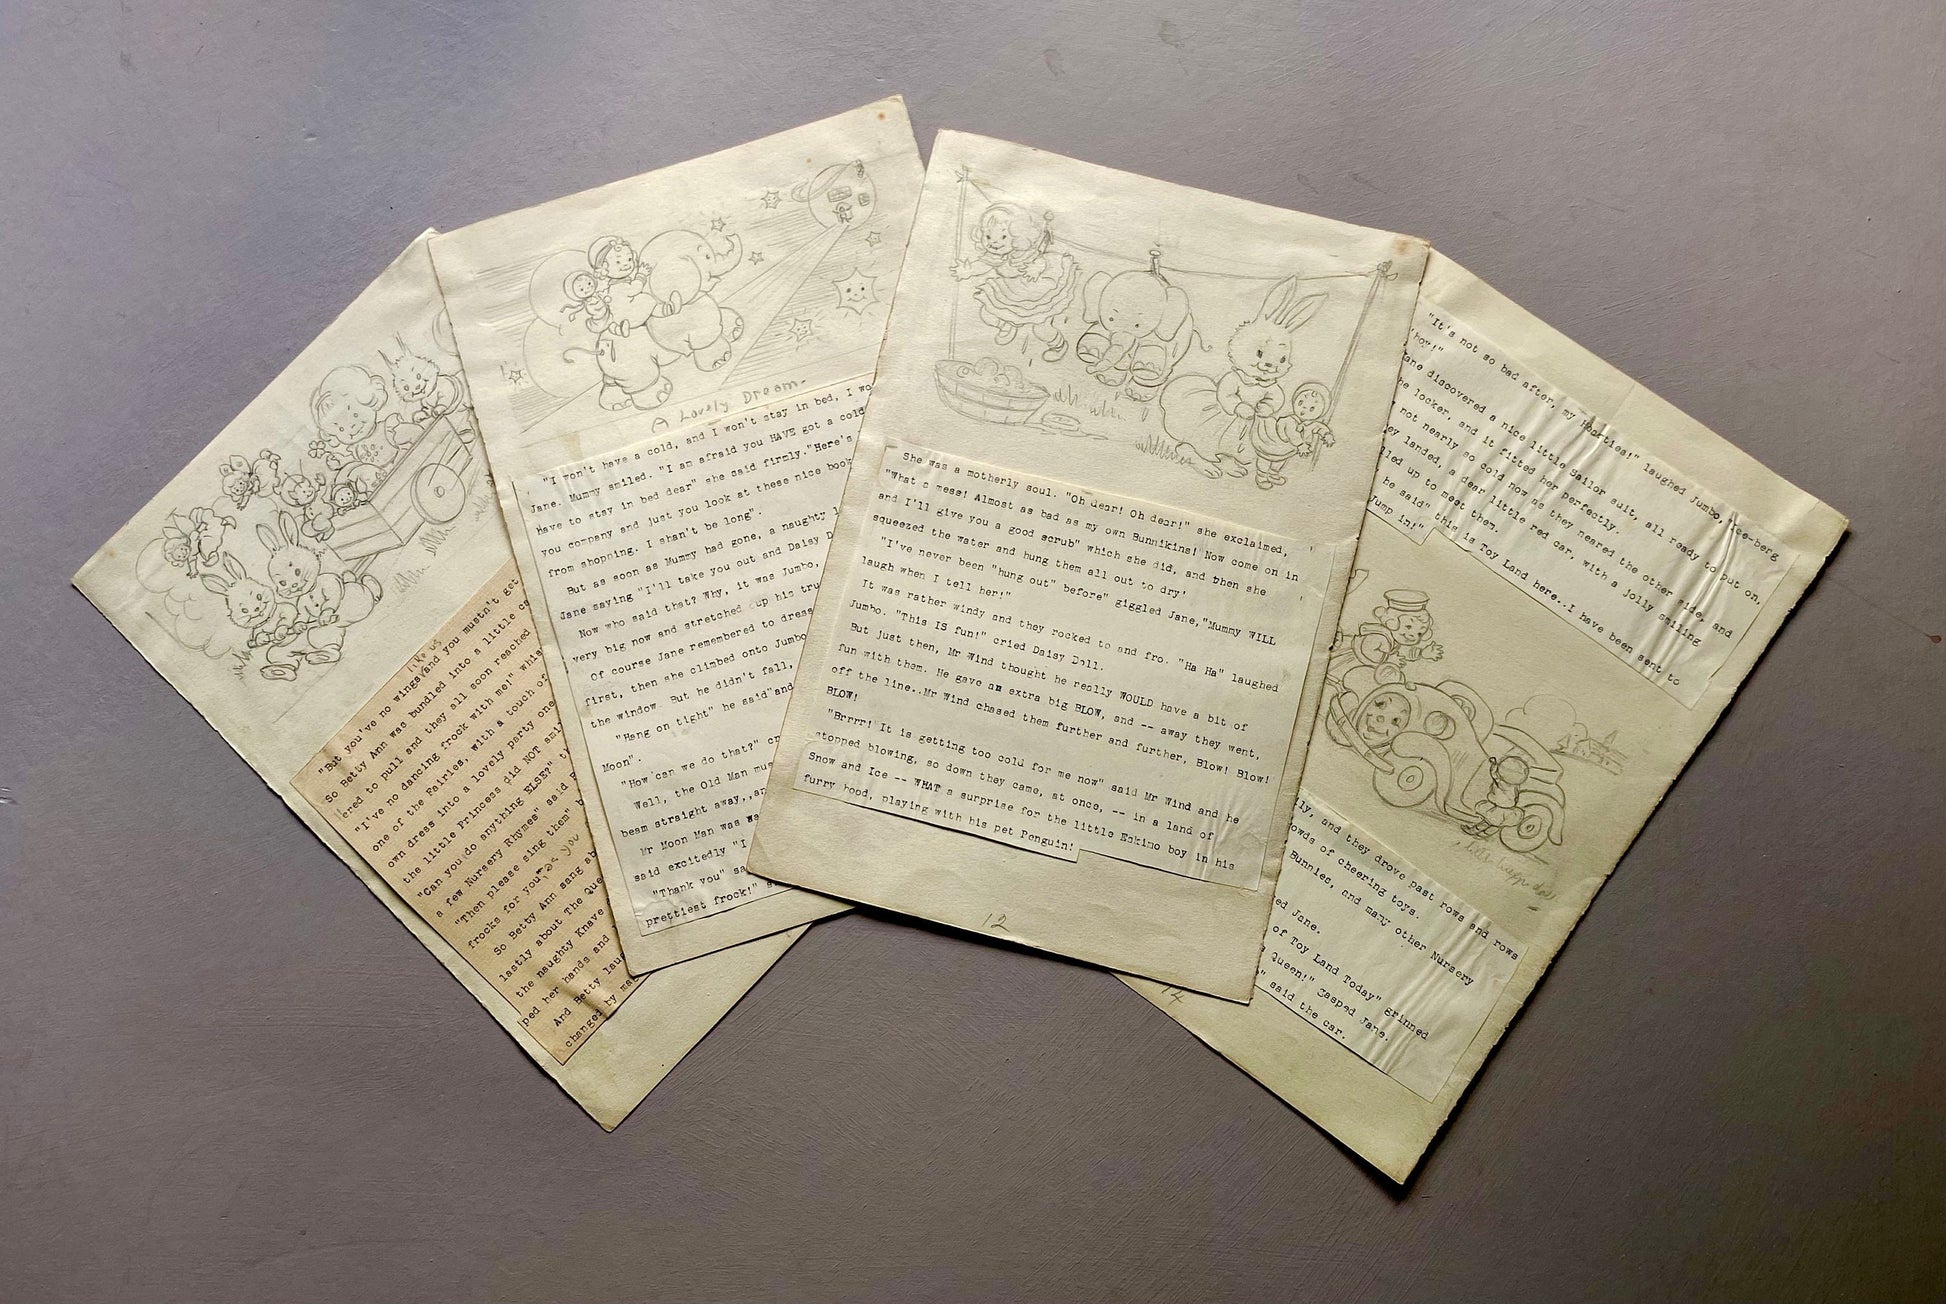 like us
"But you've no wings and you mustn't get
So Betty Ann was bundled into a little
ered to pull and they all soon reached
"I've no dancing frock with me!"
one of the Fairies, with a touch of
own dress into a lovely party one
the little Princess did NOT
"Can you do anything ELSE?"
a few Nursery Rhymes" said
"Then please sing them"
as you
frocks for you
So Betty Ann sang
lastly about The
the naughty Knave
ped her hands and
And Betty
changed by
A Lovely Dream.
"I won't have a cold, and I won't stay in bed, I
Jane. Mummy smiled. "I am afraid you HAVE got a cold
have to stay in bed dear" she said firmly. "Here's
you company and just you look at these nice book
from shopping. I shan't be long".
But as soon as Mummy had gone, a naughty
Jane saying "I'll take you out and Daisy
Now who said that? Why, it was Jumbo,
very big now and stretched up his
Of course Jane remembered to dress
first, then she climbed onto Jumbo
the window. But he didn't fall,
"Hang on tight" he said "and
Moon".
"How can we do that?"
Well, the Old Man
beam straight away,
Mr Moon Man was
said excitedly "I
"Thank you"
prettiest frock!"
She was a motherly soul. "Oh dear! Oh dear!" she exclaimed,
"What a mess! Almost as bad as my own Bunnikins! Now come on in
and I'll give you a good scrub" which she did, and then she
squeezed the water and hung them all out to dry'
"I've never been "hung out" before" giggled Jane, "Mummy WILL
laugh when I tell her!"
It was rather windy and they rocked to and fro. "Ha Ha" laughed
Jumbo. "This IS fun!" cried Daisy Doll.
But just then, Mr Wind thought he really WOULD have a bit of
fun with them. He gave an extra big BLOW, and -- away they went,
off the line..Mr Wind chased them further and further, Blow! Blow!
BLOW!
"Brrrr! It is getting too cold for me now" said Mr Wind and he
stopped blowing, so down they came, at once, -- in a land of
Snow and Ice -- WHAT a surprise for the little Eskimo boy in his
furry hood, playing with his pet Penguin!
12
"It's not so bad after, my Hearties!" laughed Jumbo, "Ice-berg
'hoy!"
Jane discovered a nice little Sailor suit, all ready to put on,
locker, and it fitted her perfectly.
not nearly so cold now as they neared the other side, and
landed, a dear little red car, with a jolly smiling
up to meet them.
he said" this is Toy Land here..I have been sent to
Jump in!"
and they drove past rows and rows
of cheering toys.
Bunnies, and many other Nursery
Jane.
of Toy Land Today" grinned
Queen!" gasped Jane.
said the car.
14